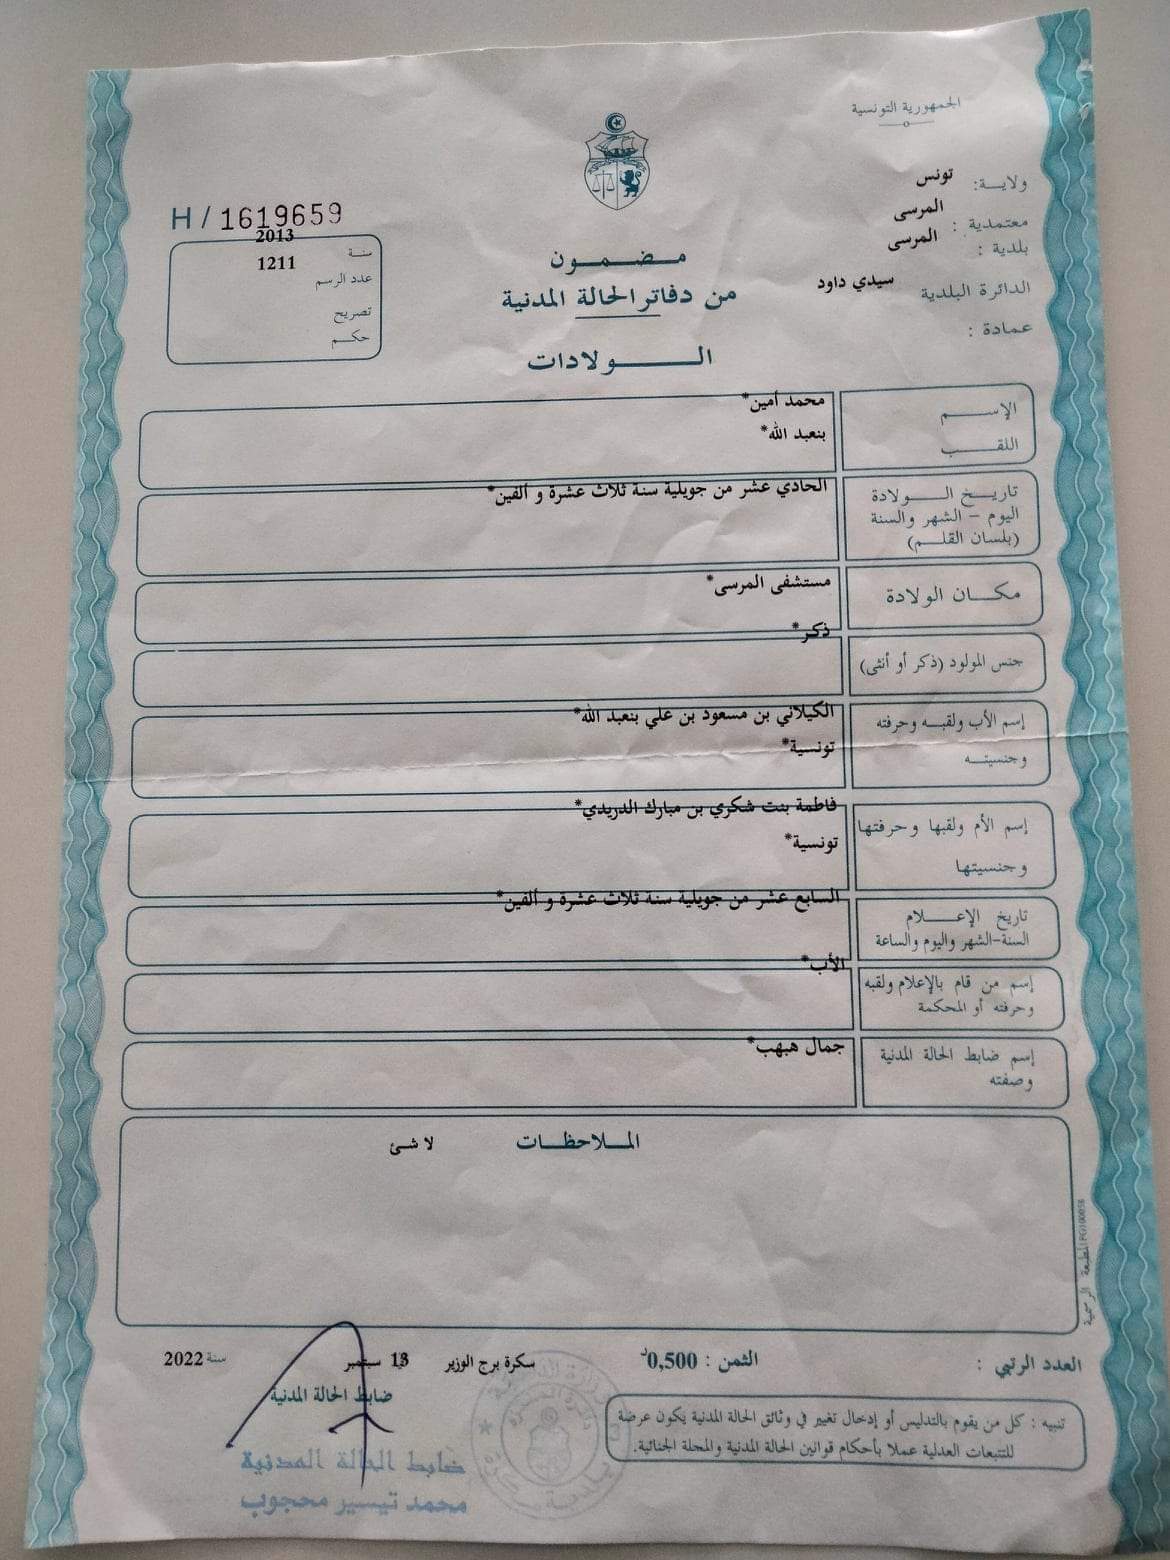 الجمهورية التونسية
ولاية: تونس
معتمدية: المرسى
بلدية: المرسى
الدائرة البلدية سيدي داود
عمادة:
H / 1619659
سنة 2013
عدد الرسم 1211
تصريح
حكم
مضمون
من دفاتر الحالة المدنية
الولادات
الإسم محمد أمين*
اللقب بنعبد الله*
تاريخ الولادة الحادي عشر من جويلية سنة ثلاث عشرة و ألفين*
اليوم - الشهر والسنة
(بلسان القلم)
مكان الولادة مستشفى المرسى*
جنس المولود (ذكر أو أنثى) ذكر*
إسم الأب ولقبه وحرفته الكيلاني بن مسعود بن علي بنعبد الله*
وجنسيته تونسية*
إسم الأم ولقبها وحرفتها فاطمة بنت شكري بن مبارك الدريدي*
وجنسيتها تونسية*
تاريخ الإعلام السابع عشر من جويلية سنة ثلاث عشرة و ألفين*
السنة-الشهر واليوم والساعة
إسم من قام بالإعلام ولقبه الأب*
وحرفته أو المحكمة
إسم ضابط الحالة المدنية جمال هبهب*
وصفته
الملاحظات لا شئ
المطبعة الرسمية PG100058
العدد الرتبي :
الثمن : 0,500د
سكرة برج الوزير في 13 سبتمبر سنة 2022
ضابط الحالة المدنية
تنبيه : كل من يقوم بالتدليس أو إدخال تغيير في وثائق الحالة المدنية يكون عرضة
للتتبعات العدلية عملا بأحكام قوانين الحالة المدنية والمجلة الجنائية.
ضابط الحالة المدنية
محمد تيسير محجوب